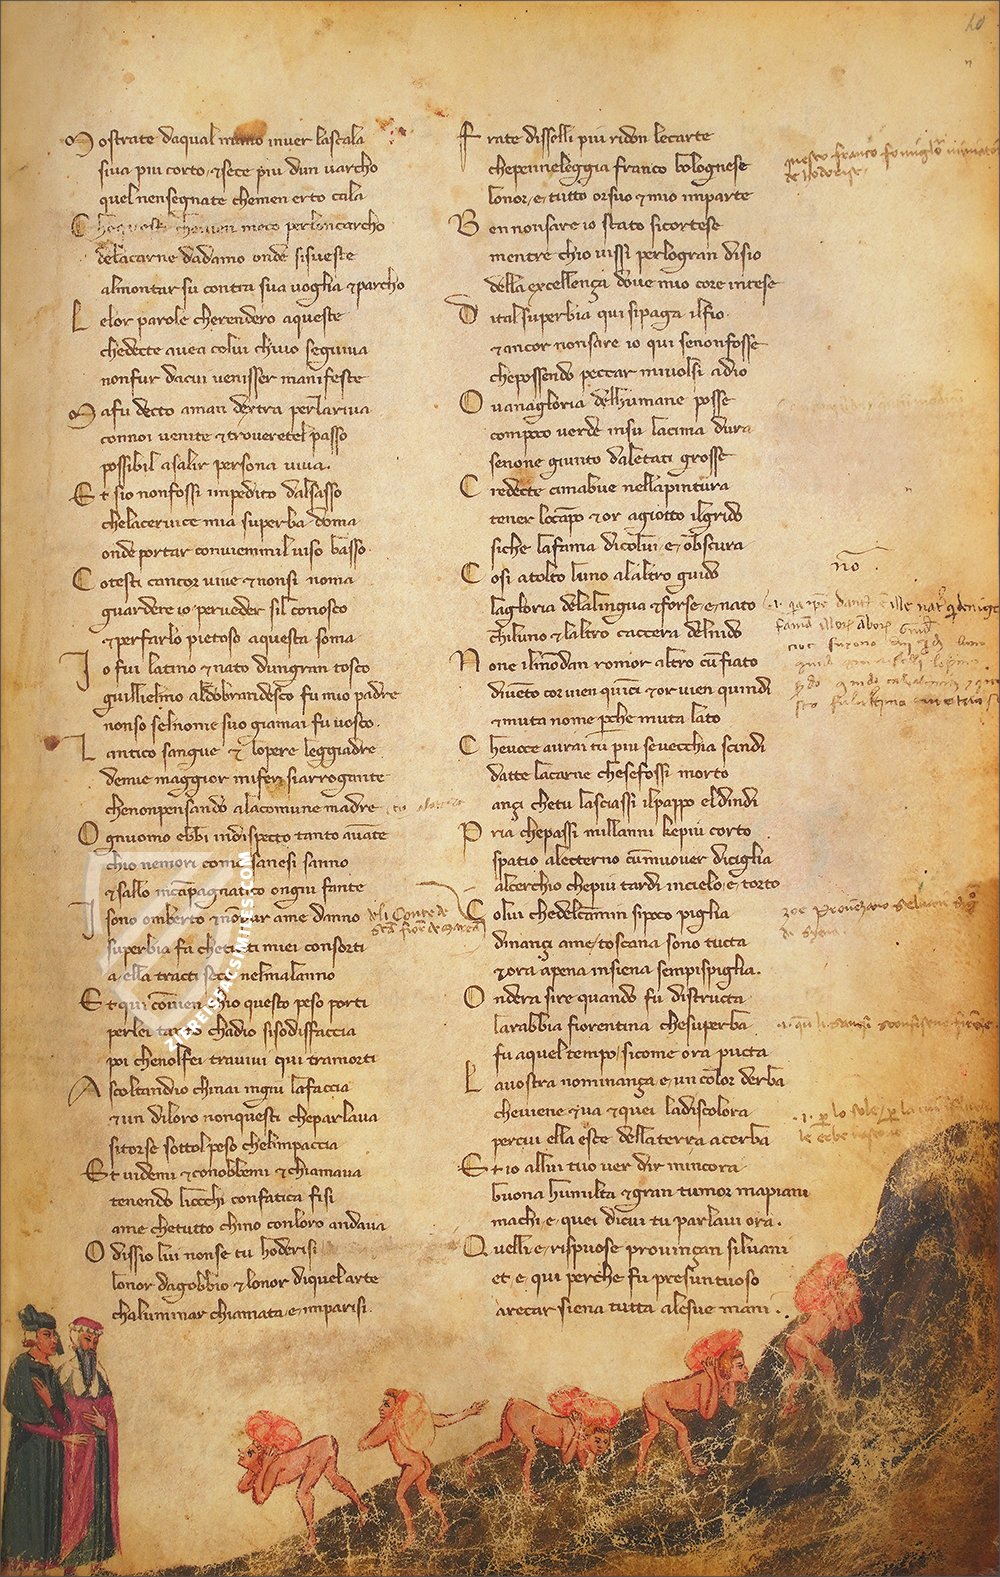 40
Mostrate daqual mano inver lascala
siva piu corto, & sece piu dun varcho
quel nensegnate chemen erto cala
Che questi chevien meco perloncarcho
delacarne dadamo onde sisveste
almontar su contra sua voglia & parcho
Lelor parole cherendero aqueste
chedecte avea colui chuio seguiva
nonfur dacui venisser manifeste
Mafu decto aman dextra perlariva
connoi venite & troveretel passo
possibil asalir persona viva.
Et sio nonfossi impedito dalsasso
chelacervice mia superba doma
onde portar conviemmil viso basso.
Cotesti cancor vive & nonsi noma
guardere io perveder sil conosco
& perfarlo pietoso aquesta soma
Io fui latino & nato dungran tosco
guillielmo aldobrandesco fu mio padre
nonso selnome suo giamai fu vosco.
Lantico sangue & lopere leggiadre
demie maggior mifer siarrogante
chenonpensando alacomune madre
Ognuomo ebbi indispecto tanto avante
chio nemori come sanesi sanno
& sallo incapagnatico ongni fante
Isono omberto & nonpur ame danno
superbia fa che tucti miei consorti
a ella tracti seco nelmalanno
Et qui convien chio questo peso porti
perlei tanto chadio sisodisfaccia
poi chenolfei travivi qui tramorti
Ascoltandio chinai ingiu lafaccia
& un diloro nonquesti cheparlava
sitorse sottol peso chelimpaccia
Et videmi & conobbemi & chiamava
tenendo liocchi confatica fisi
ame chetutto chino conloro andava
O dissio lui nonse tu hoderisi
lonor dagobbio & lonor diquel arte
chaluminar chiamata e, imparisi.
Frate disselli piu ridon lecarte
chepenneleggia franco bolognese
lonor, e, tutto or suo & mio imparte
Ben nonsare io stato sicortese
mentre chio vissi perlogran disio
della excellença dove mio core intese
Dital superbia qui sipaga ilfio.
& ancor nonsare io qui senonfosse
chepossendo peccar mivolsi adio
O vanagloria dellhumane posse
compoco verde insu lacima dura
senone giunto daletati grosse
Credecte cimabue nellapintura
tener locapo & or agiotto ilgrido
siche lafama dicolui, e, obscura
Cosi atolto luno alaltro guido
lagloria delalingua & forse, e, nato
chiluno & laltro caccera delnido
None ilmondan romor altro cun fiato
divento cor vien quinci & or vien quindi
& muta nome perche muta lato
Che voce avrai tu piu sevecchia scindi
datte lacarne chesefossi morto
ançi chetu lasciassi ilpappo eldindi
Pria chepassi millanni kepiu corto
spatio alecterno cunmuover diciglia
alcerchio chepiu tardi incielo, e, torto
Colui chedelcammin sipoco piglia
dinançi ame, toscana sono tucta
& ora apena insiena sempispiglia.
Ondera sire quando fu distructa
larabbia fiorentina chesuperba
fu aquel tempo, sicome ora pucta
Lavostra nominança, e, un color derba
cheviene & va & quei ladiscolora
percui ella esce dellaterra acerba
Et io allui tuo ver dir mincora
buona humilta & gran tumor mapiani
ma chi, e, quei dicui tu parlavi ora.
Quelli, e, rispuose provinçan silvani
et e qui perche fu presuntuoso
arecar siena tutta alesue mani.
questo franco
no.
ZIEREIS FACSIMILES.COM